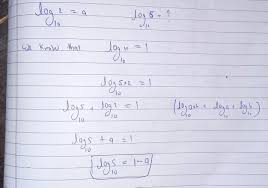 log₁₀2 = a    log₁₀5 = ?
we know that    log₁₀10 = 1
log₁₀5×2 = 1
log₁₀5 + log₁₀2 = 1    (log a×b = log a + log b)
log₁₀5 + a = 1
log₁₀5 = 1-a